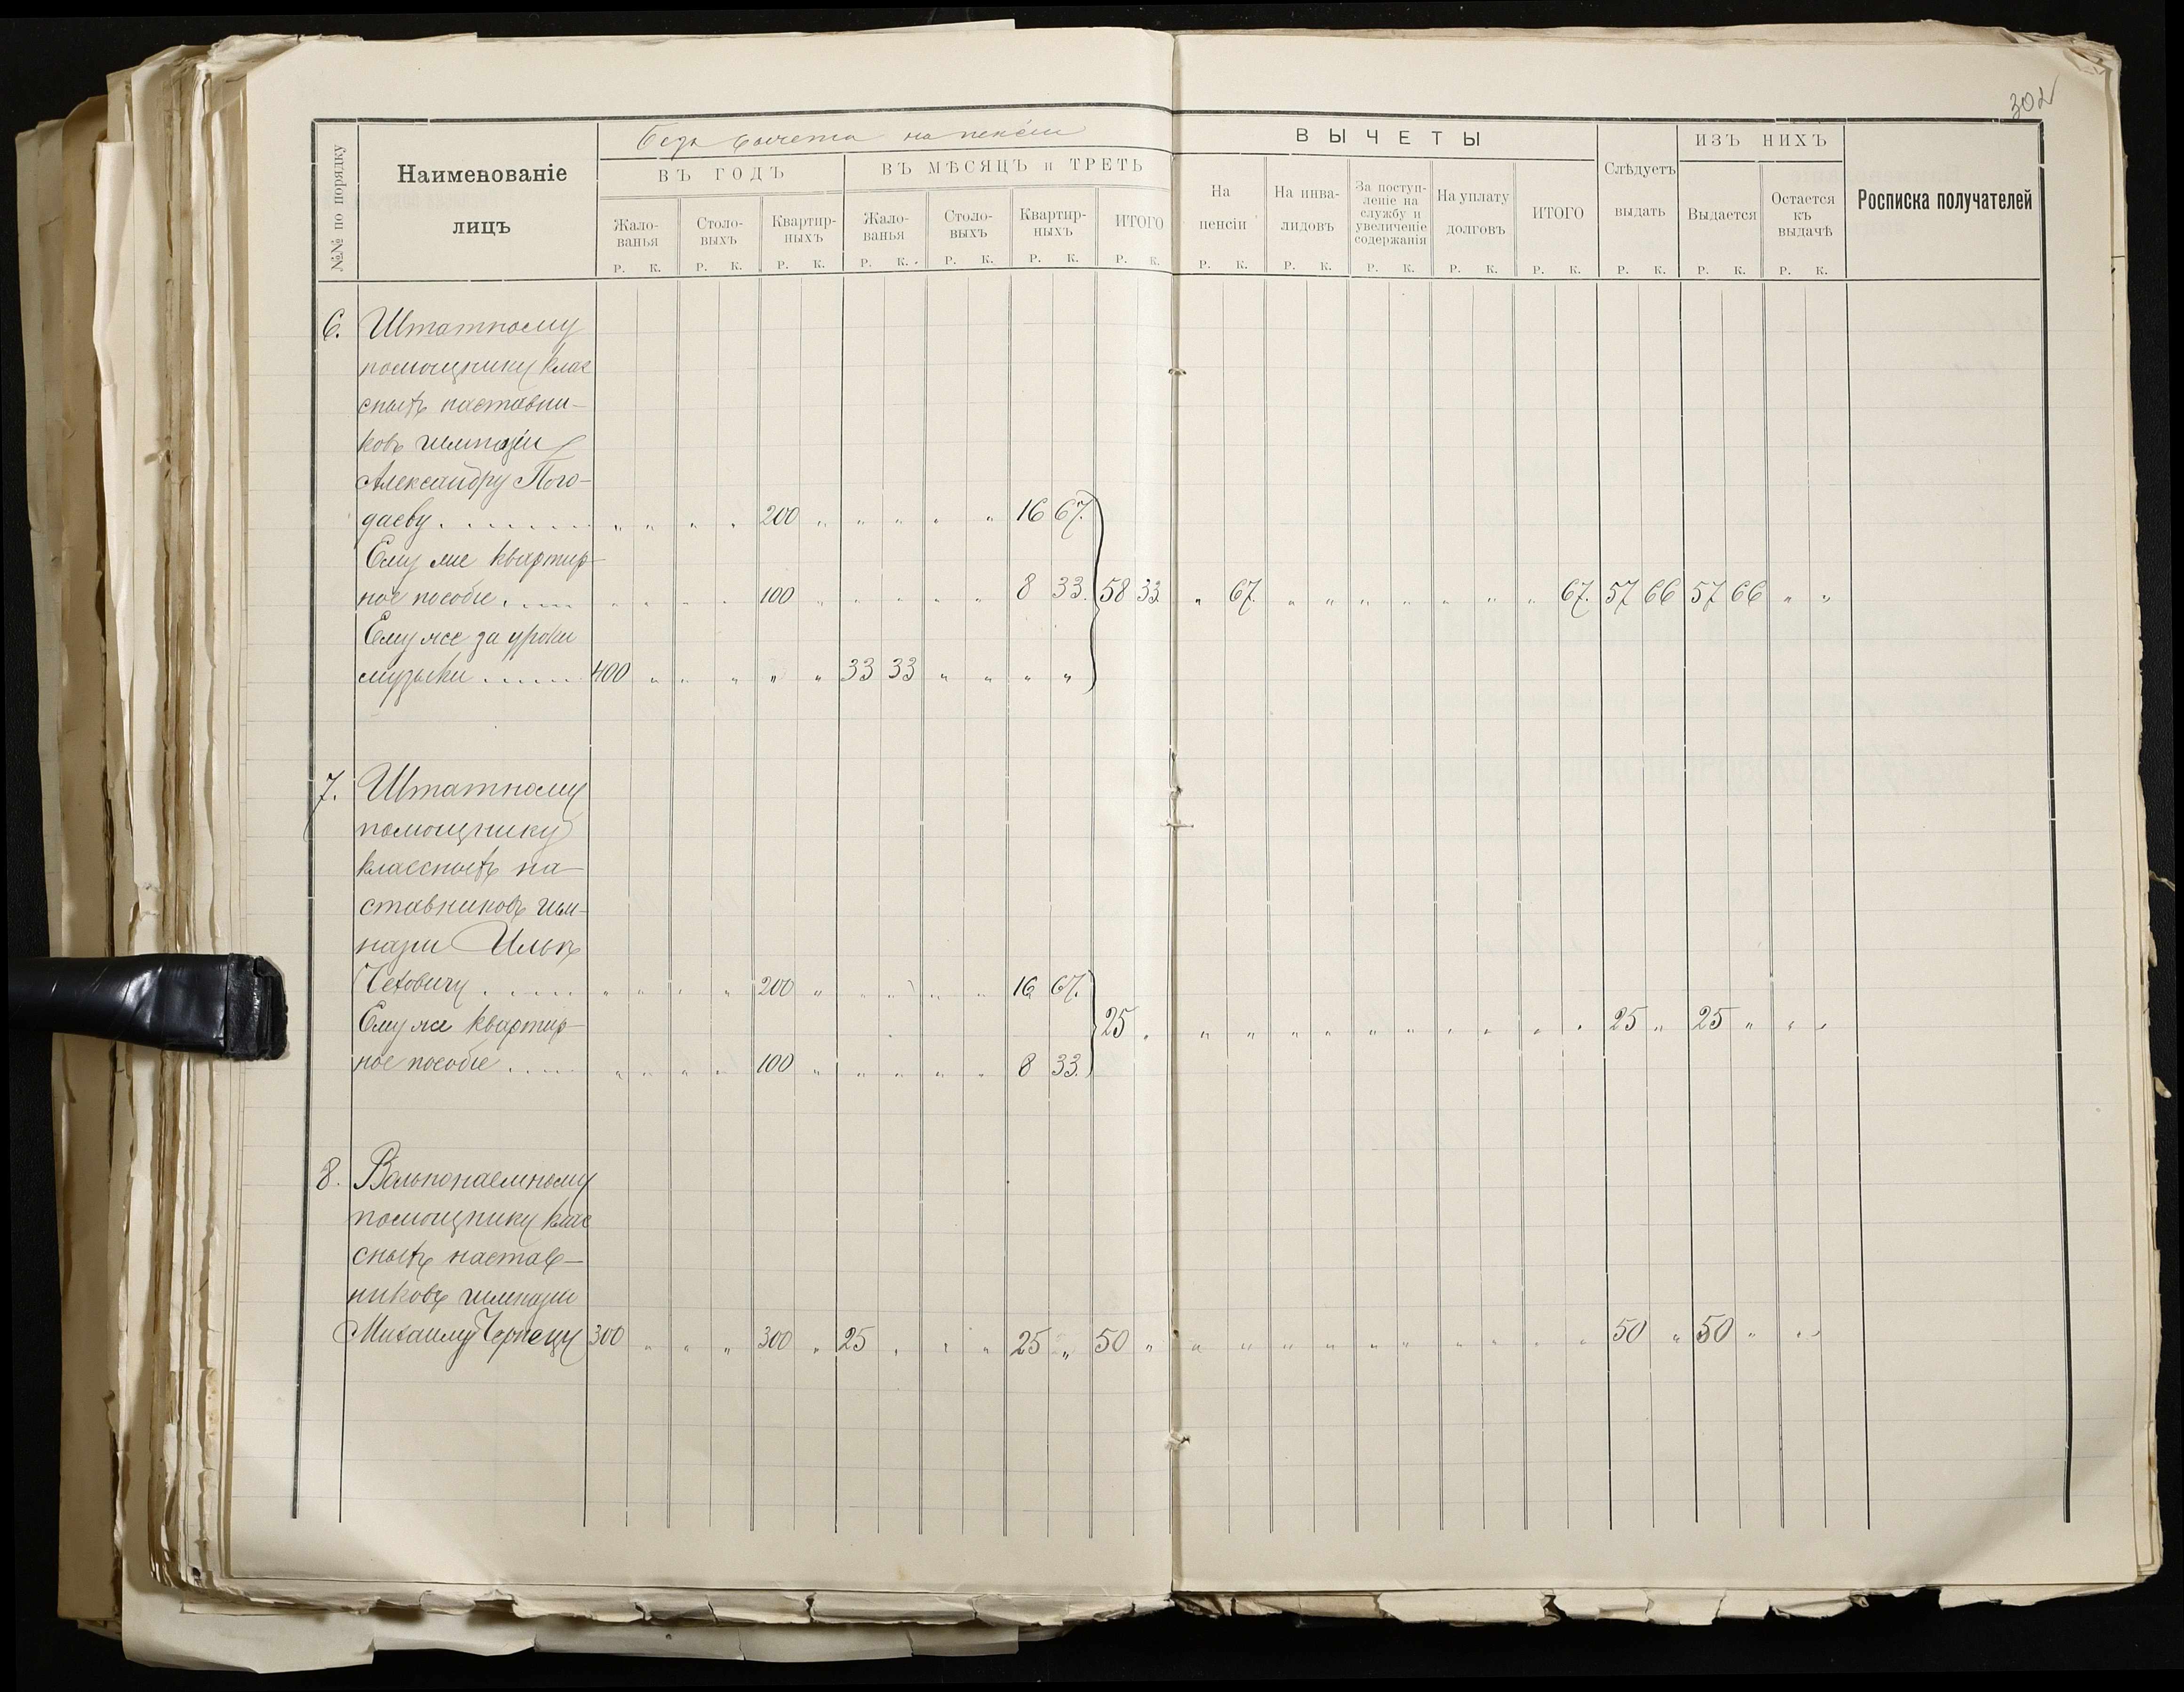 302
№№ по порядку
Наименованіе
лицъ
Безъ вычета на пенсіи
ВЪ ГОДЪ
ВЪ МѢСЯЦЪ и ТРЕТЬ
Жало-
ванья
Столо-
выхъ
Квартир-
ныхъ
Жало-
ванья
Столо-
выхъ
Квартир-
ныхъ
ИТОГО
Р. К. Р. К. Р. К. Р. К. Р. К. Р. К. Р. К.
ВЫЧЕТЫ
На
пенсіи
На инва-
лидовъ
За поступ-
леніе на
службу и
увеличеніе
содержанія
На уплату
долговъ
ИТОГО
Слѣдуетъ
выдать
ИЗЪ НИХЪ
Выдается
Остается
къ
выдачѣ
Росписка получателей
Р. К. Р. К. Р. К. Р. К. Р. К. Р. К. Р. К. Р. К.
6. Штатному
помощнику клас
сныхъ наставни-
ковъ гимназіи
Александру Пого-
даеву . . . . . . . " " " " 200 " " " " " 16 67.
Ему же квартир-
ное пособіе . . . . " " " " 100 " " " " " 8 33. 58 33 " 67. " " " " " " " 67. 57 66 57 66 " "
Ему же за уроки
музыки . . . . . . 400 " " " " " 33 33 " " " "
7. Штатному
помощнику
классныхъ на-
ставниковъ гим-
назіи Ильѣ
Чеховичу . . . . . " " " " 200 " " " " " 16 67.
Ему же квартир- 25 " " " " " " " " " " " 25 " 25 " " "
ное пособіе . . . . " " " " 100 " " " " " 8 33.
8. Вольнонаемному
помощнику клас
сныхъ настав-
никовъ гимназіи
Михаилу Чернецу 300 " " " 300 " 25 " " " 25 " 50 " " " " " " " " " " " 50 " 50 " " "